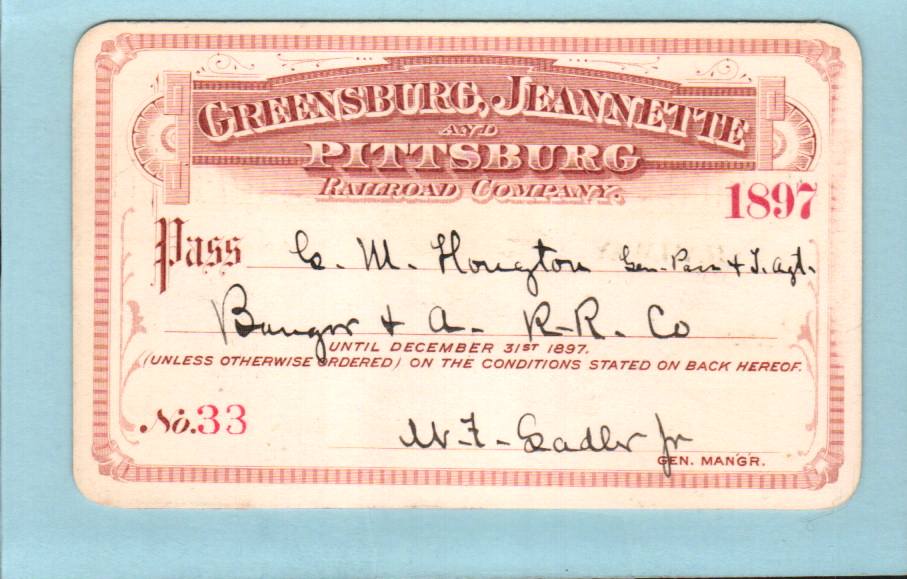 GREENSBURG, JEANNETTE
AND
PITTSBURG
RAILROAD COMPANY.
1897
Pass G. M. Hougton Gen. Pass & T. Agt.
Bangor & A. R.R. Co
UNTIL DECEMBER 31ST 1897.
(UNLESS OTHERWISE ORDERED) ON THE CONDITIONS STATED ON BACK HEREOF.
No. 33
W. F. Sadler Jr
GEN. MAN'G'R.